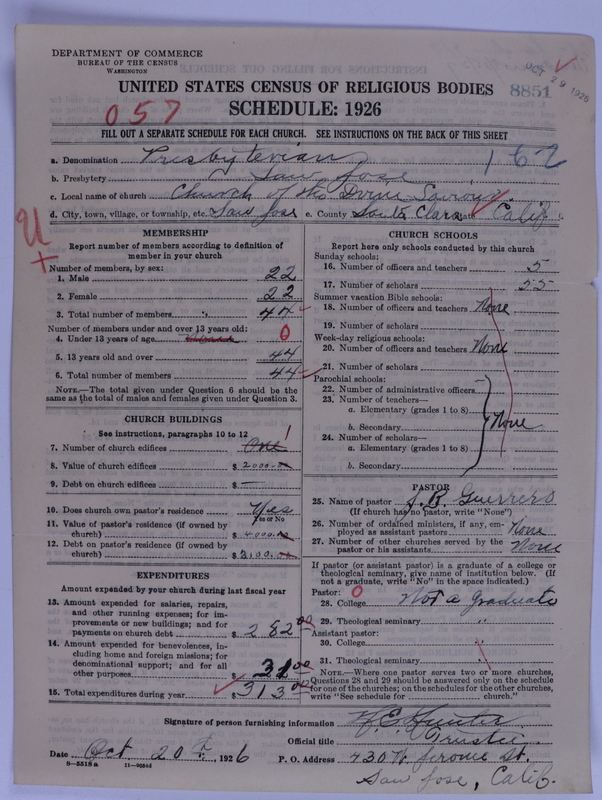 DEPARTMENT OF COMMERCE
BUREAU OF THE CENSUS
WASHINGTON
OCT 29 1926
8851
UNITED STATES CENSUS OF RELIGIOUS BODIES
057
SCHEDULE: 1926
FILL OUT A SEPARATE SCHEDULE FOR EACH CHURCH. SEE INSTRUCTIONS ON THE BACK OF THIS SHEET
a. Denomination Presbyterian 162
b. Presbytery San Jose
c. Local name of church Church of the Divine Saviour
d. City, town, village, or township, etc. San Jose e. County Santa Clara State Calif
MEMBERSHIP
Report number of members according to definition of
member in your church
Number of members, by sex:
1. Male 22
2. Female 22
3. Total number of members 44
Number of members under and over 13 years old:
4. Under 13 years of age 0
5. 13 years old and over 44
6. Total number of members 44
NOTE.—The total given under Question 6 should be the
same as the total of males and females given under Question 3.
CHURCH BUILDINGS
See instructions, paragraphs 10 to 12
7. Number of church edifices One 1
8. Value of church edifices $ 2000.00
9. Debt on church edifices $ —
10. Does church own pastor's residence Yes
Yes or No
11. Value of pastor's residence (if owned by
church) $ 4000.00
12. Debt on pastor's residence (if owned by
church) $ 3100.00
EXPENDITURES
Amount expended by your church during last fiscal year
13. Amount expended for salaries, repairs,
and other running expenses; for im-
provements or new buildings; and for
payments on church debt $ 282 00
14. Amount expended for benevolences, in-
cluding home and foreign missions; for
denominational support; and for all
other purposes $ 31 00
15. Total expenditures during year $ 313 00
CHURCH SCHOOLS
Report here only schools conducted by this church
Sunday schools:
16. Number of officers and teachers 5
17. Number of scholars 55
Summer vacation Bible schools:
18. Number of officers and teachers None
19. Number of scholars
Week-day religious schools:
20. Number of officers and teachers None
21. Number of scholars
Parochial schools—
22. Number of administrative officers
23. Number of teachers—
a. Elementary (grades 1 to 8)
b. Secondary None
24. Number of scholars—
a. Elementary (grades 1 to 8)
b. Secondary
PASTOR
25. Name of pastor J. R. Guerrero
(If church has no pastor, write "None")
26. Number of ordained ministers, if any, em-
ployed as assistant pastors None
27. Number of other churches served by the
pastor or his assistants None
If pastor (or assistant pastor) is a graduate of a college or
theological seminary, give name of institution below. (If
not a graduate, write "No" in the space indicated.)
Pastor: 0
28. College Not a graduate
29. Theological seminary "
Assistant pastor:
30. College "
31. Theological seminary "
NOTE.—Where one pastor serves two or more churches,
Questions 28 and 29 should be answered only on the schedule
for one of the churches; on the schedules for the other churches,
write "See schedule for church."
Signature of person furnishing information
Official title Trustee
Date Oct. 20th, 1926 P. O. Address 430 N. Jerome St.
8-5518a 11-9054d
San Jose, Calif.